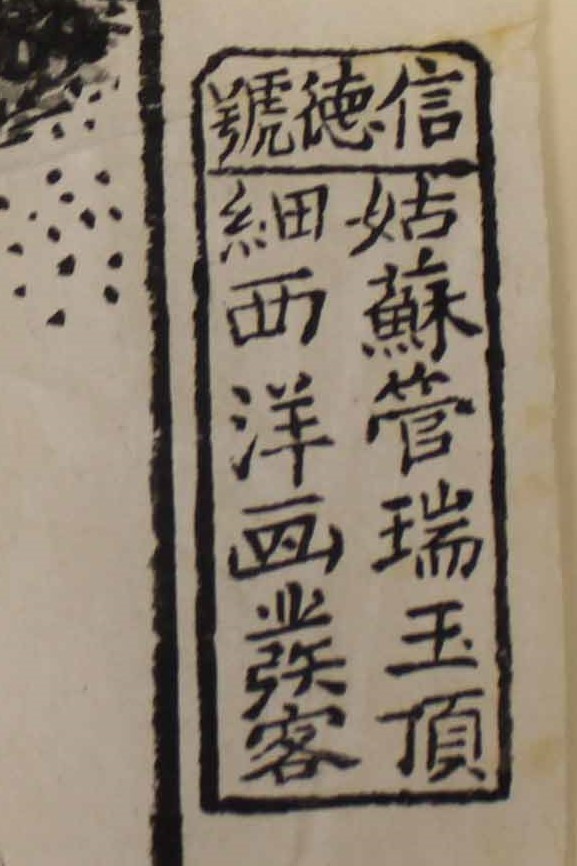 信德號
姑蘇管瑞玉頂
細西洋画發客